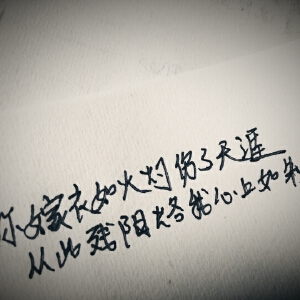 你嫁衣如火灼伤了天涯
从此残阳烙我心上如